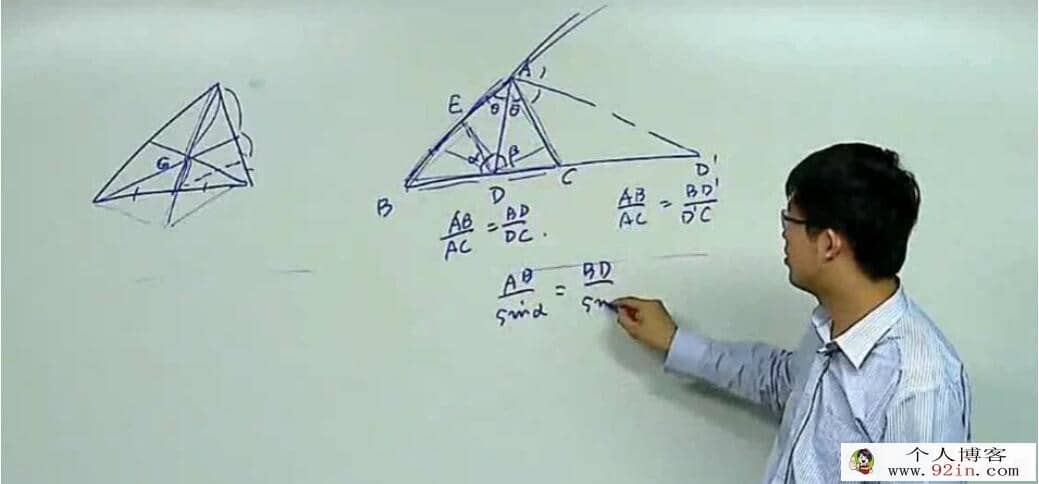 G
A
E
θ θ
α β
B D C D'
AB/AC = BD/DC .
AB/AC = BD'/D'C
AB/sinα = BD/sin
个人博客
www.92in.com